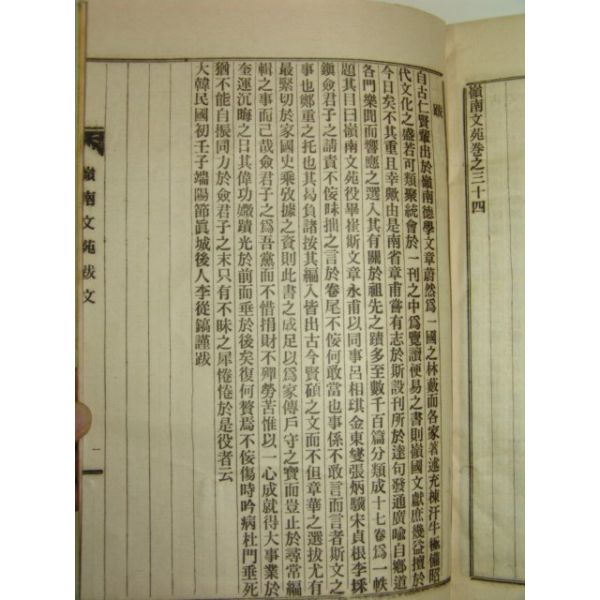 嶺南文苑卷之三十四
跋
自古仁賢輩出於嶺南德學文章蔚然爲一國之林藪而各家著述充棟汗牛極備昭
代文化之盛若可類聚統會於一刊之中爲覽讀便易之書則嶺國文獻庶幾益擅於
今日矣不其重且幸歟由是南省章甫嘗有志於斯設刊所於達句發通廣喩自鄕道
各門樂聞而響應之選入其有關於祖先之蹟多至數千百篇分類成十七卷爲一帙
題其目曰嶺南文苑役畢崔斯文章永甫以同事呂相琪金東燮張炳驥宋貞根李埰
鎭僉君子之請責不佞昧拙之言於卷尾不佞何敢當也事係不敢言而言者斯文之
事也鄭重之托也其曷負諸按其編入皆出古今賢碩之文而不但章華之選拔尤有
最緊切於家國史乘攷據之資則此書之成足以爲家傳戶守之寶而豈止於尋常編
輯之事而已哉僉君子之爲吾黨而不惜捐財不殫勞苦惟以一心成就得大事業於
奎運沉晦之日其偉功嫩蹟光於前而垂於後矣復何贅焉不佞傷時吟病杜門垂死
猶不能自振同力於僉君子之末只有不昧之犀惓惓於是役者云
大韓民國初壬子端陽節眞城後人李從鎬謹跋
嶺南文苑跋文
一